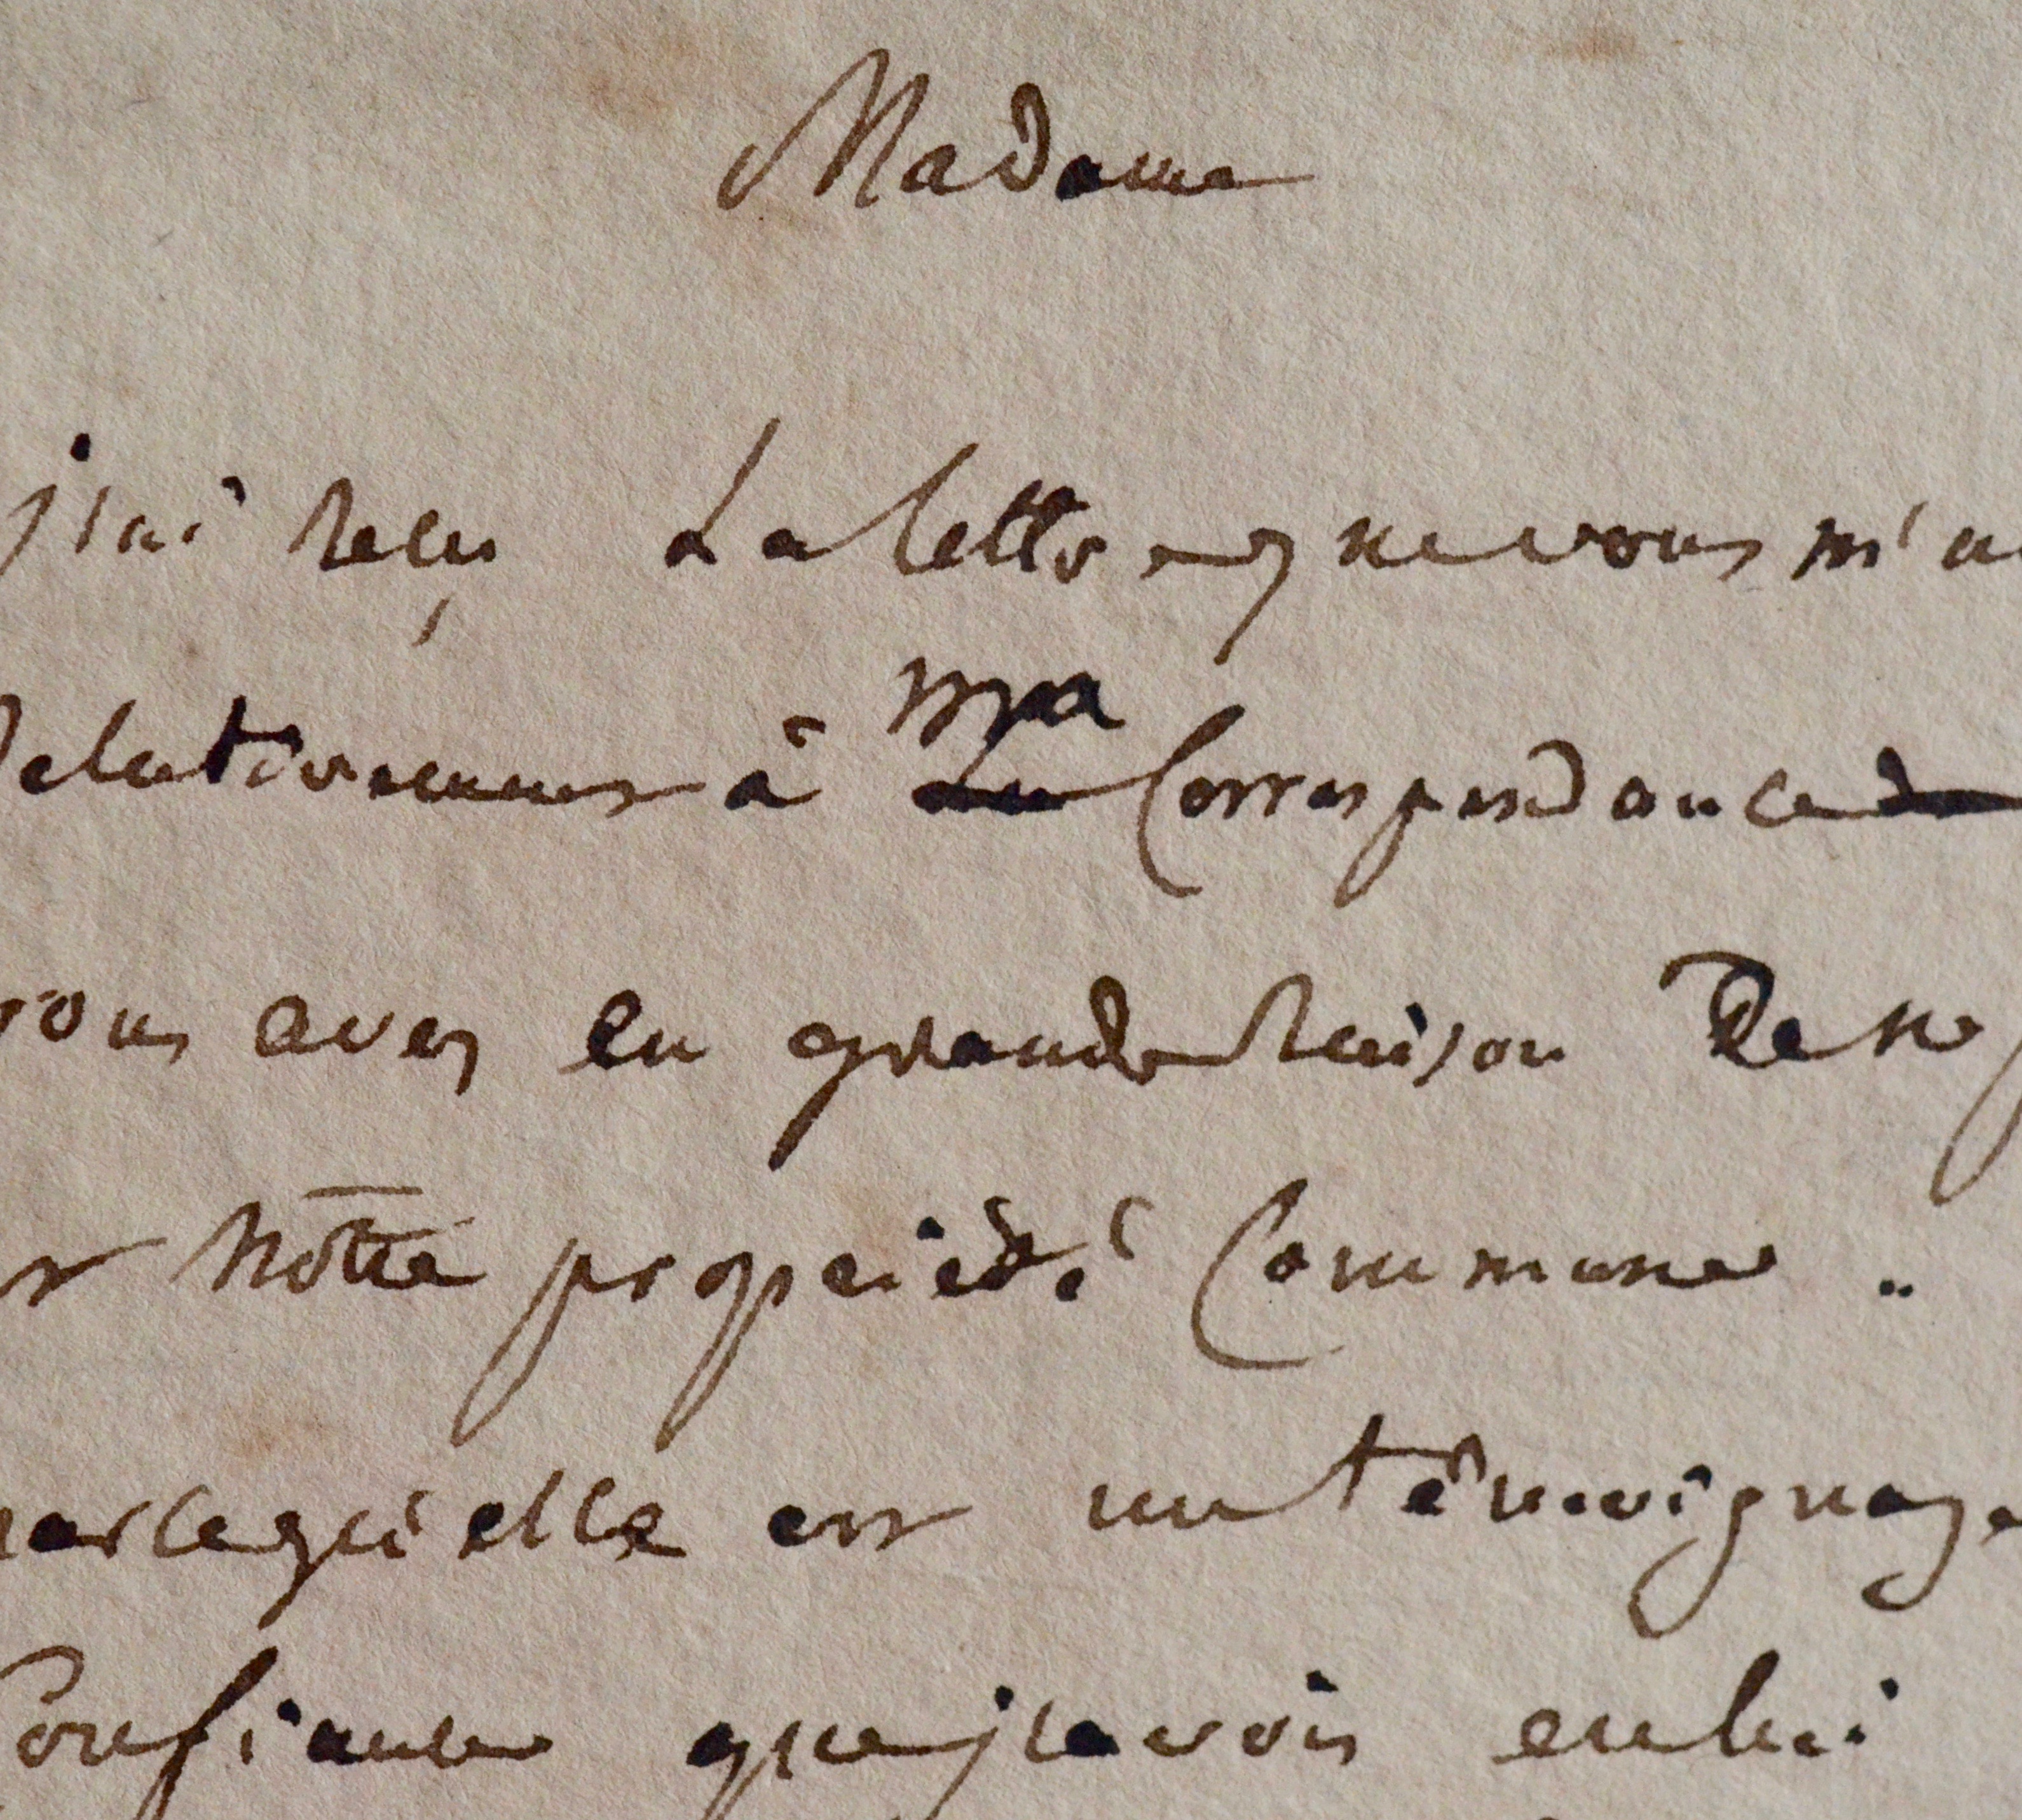 Madame
j'ai reçu La lettre que vous m'a
Relativement à ma La Correspondance de
vous avez eu grande Raison De ne
notre propriété Commune ..
parcequ'elle est un témoignage
Confiance que j'avois en lui